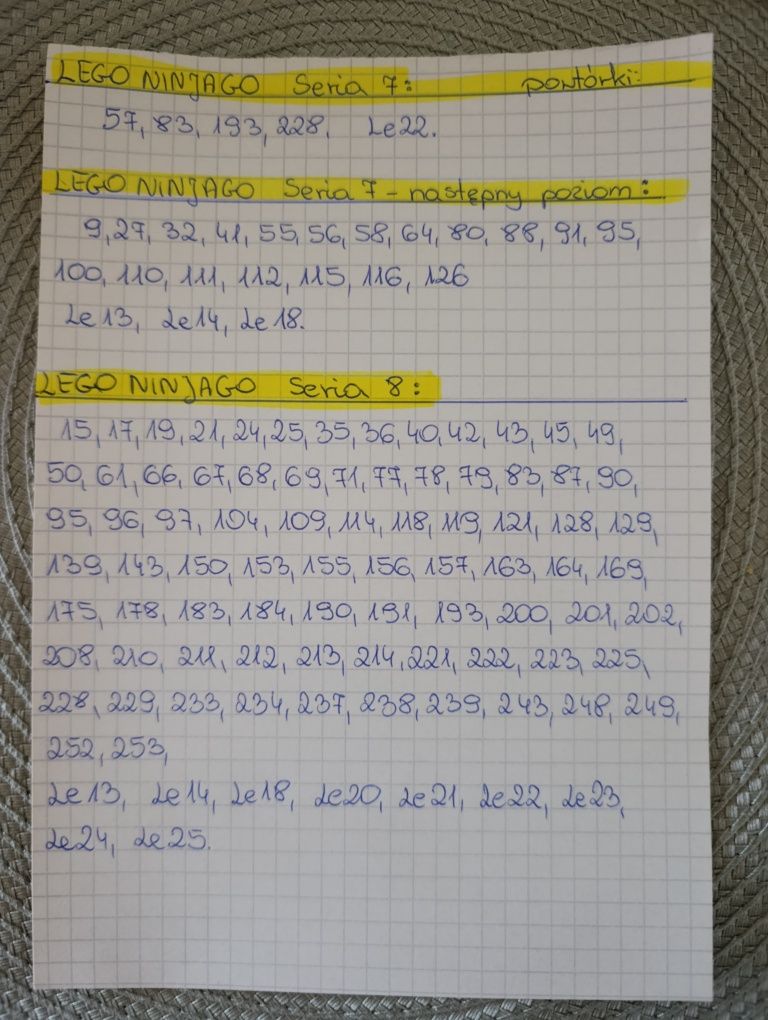 LEGO NINJAGO Seria 7: powtórki:
57, 83, 193, 228, Le22.
LEGO NINJAGO Seria 7 - następny poziom:
9, 27, 32, 41, 55, 56, 58, 64, 80, 88, 91, 95,
100, 110, 111, 112, 115, 116, 126
Le13, Le14, Le18.
LEGO NINJAGO Seria 8:
15, 17, 19, 21, 24, 25, 35, 36, 40, 42, 43, 45, 49,
50, 61, 66, 67, 68, 69, 71, 77, 78, 79, 83, 87, 90,
95, 96, 97, 104, 109, 114, 118, 119, 121, 128, 129,
139, 143, 150, 153, 155, 156, 157, 163, 164, 169,
175, 178, 183, 184, 190, 191, 193, 200, 201, 202,
208, 210, 211, 212, 213, 214, 221, 222, 223, 225,
228, 229, 233, 234, 237, 238, 239, 243, 248, 249,
252, 253,
Le13, Le14, Le18, Le20, Le21, Le22, Le23,
Le24, Le25.